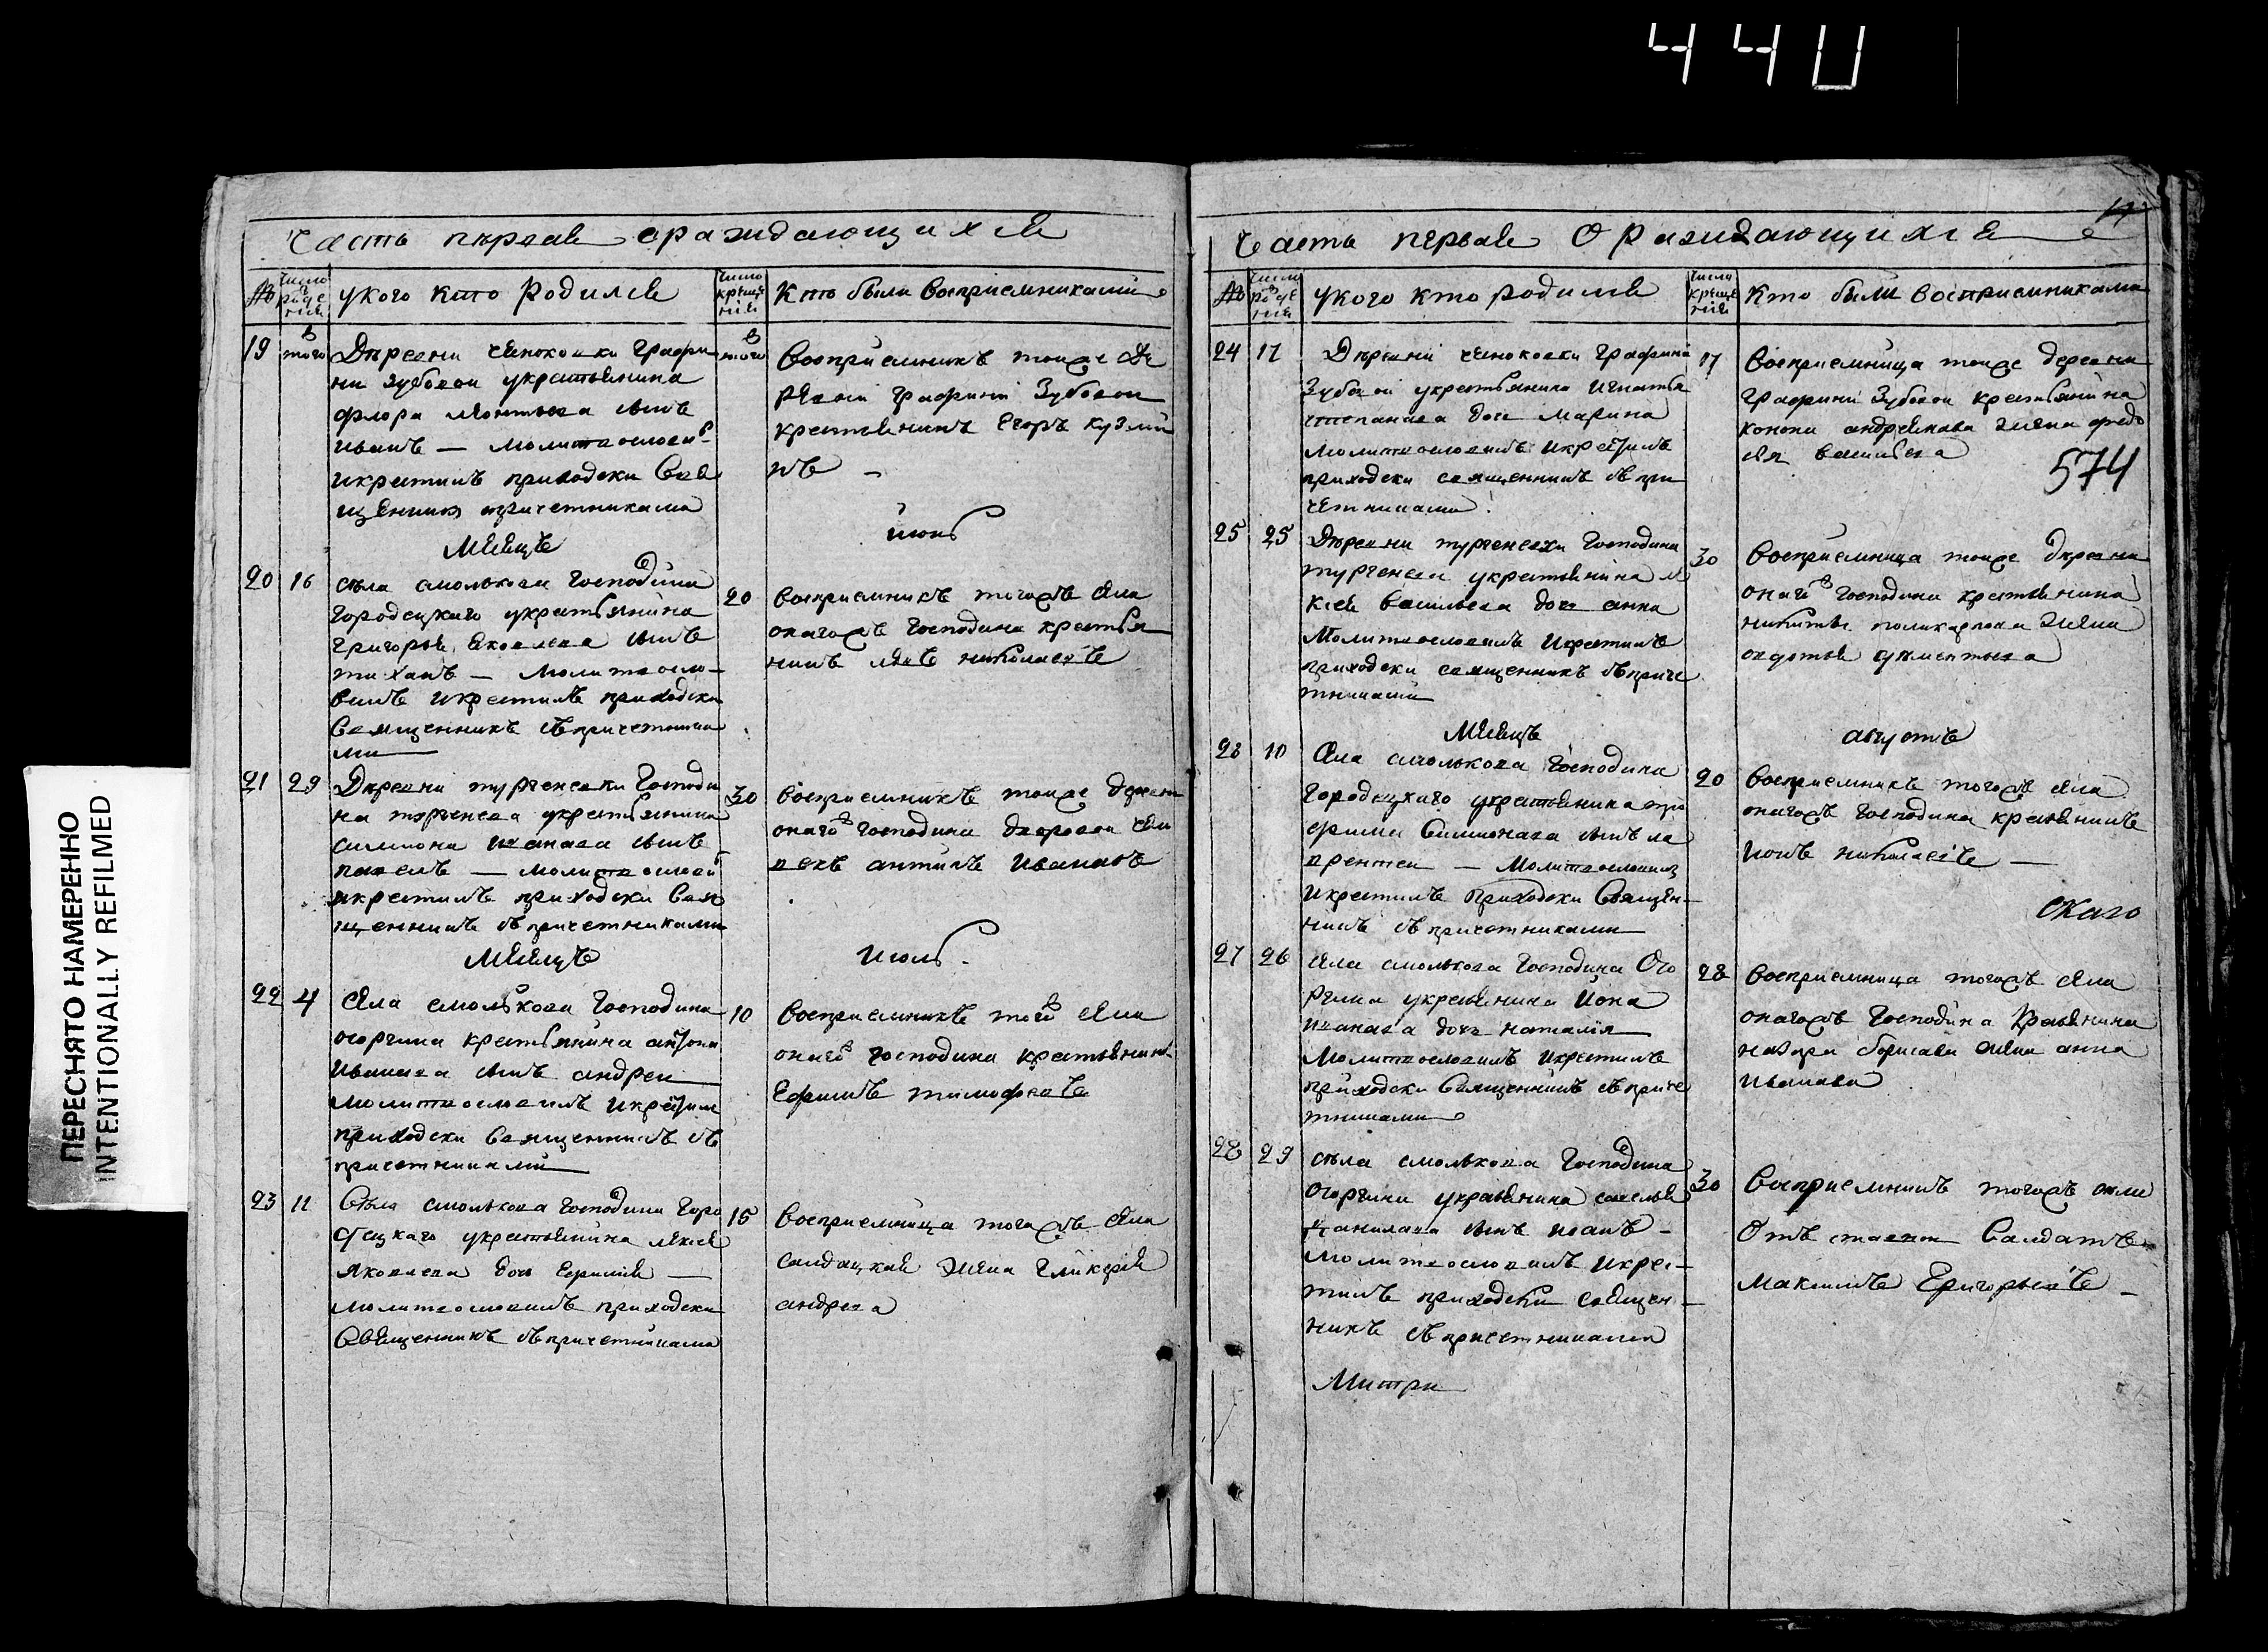 440
ПЕРЕСНЯТО НАМЕРЕННО
INTENTIONALLY REFILMED
Часть первая ораждающихся
№
число рожде ния
укого кто родился
число креще ния
Кто были восприемниками
19
того
Деревни графи
ни зубовои укрестьянина
флора леонтьева сынъ
иванъ — молитвослови
икрестилъ приходски свя
щенникъ спричетниками
того
восприемникъ тоиже де
ревни графини Зубовои
крестьянинъ Егоръ кузми
нъ —
Месяцъ
июнь
20
16
села смолькова господина
городецкаго укрестьянина
григорья яковлева сынъ
тихонъ — молитвосло-
вилъ икрестилъ приходски
священникъ съпричетника
ми
20
восприемникъ тогожъ села
онагожъ господина крестья
нинъ николаевъ
21
29
Деревни тургеневки господи
на тургенева укрестьянина
симиона иванова сынъ
павелъ — молитвослови
икрестилъ приходски свя
щенникъ съпричетниками
30
восприемникъ тоиже деревни
онаго господина дворовои чел
векъ антипъ ивановъ
Месяцъ
июль
22
4
села смолькова господина
огорелина крестьянина антона
иванова сынъ андреи
молитвословилъ икрестил
приходски священникъ съ
причетниками
10
восприемникъ того села
онаго господина крестьянинъ
Ефимъ тимофеевъ
23
11
села смолькова господина горо
децкаго укрестьянина алексея
яковлева дочь Евфимия —
молитвословилъ приходски
священникъ съпричетниками
15
восприемница тогожъ села
салдацкая жена гликерия
андреева
Часть первая Ораждающихся
17
№
число рожде ния
укого кто родился
число креще ния
Кто были восприемниками
24
17
Деревни графини
Зубовои укрестьянина игнатья
степанова дочь марина
молитвословилъ икрестилъ
приходски священникъ съпри
четниками
17
восприемница тоиже деревни
графини Зубовои крестьянина
конона андреянова жена федо
сья васильева
574
25
25
Деревни тургеневки господина
тургенева укрестьянина
васильева дочь анна
молитвословилъ икрестилъ
приходски священникъ съприче
тниками
30
восприемница тоиже деревни
онаго господина крестьянина
никиты поликарпова жена
авдотья
Месяцъ
августъ
28
10
села смолькова господина
городецкаго укрестьянина тро
фима симионова сынъ ла
врентеи — молитвословилъ
икрестилъ приходски священ-
никъ съпричетниками
20
восприемникъ тогожъ села
онагожъ господина крестьянинъ
ионъ николаевъ —
скаго
27
26
села смолькова господина Ого
релина укрестьянина Иона
иванова дочь наталия
молитвословилъ икрестилъ
приходски священникъ съприче
тниками
28
восприемница тогожъ села
онагожъ господина крестьянина
назара борисова жена анна
иванова
28
29
села смолькова господина
Огорелина укрестьянина савелья
данилова сынъ иванъ —
молитвословилъ икрес-
тилъ приходски священ-
никъ съпричетниками
30
восприемникъ тогожъ села
Отъ ставнои Салдатъ
максимъ Григорьевъ —
Митри